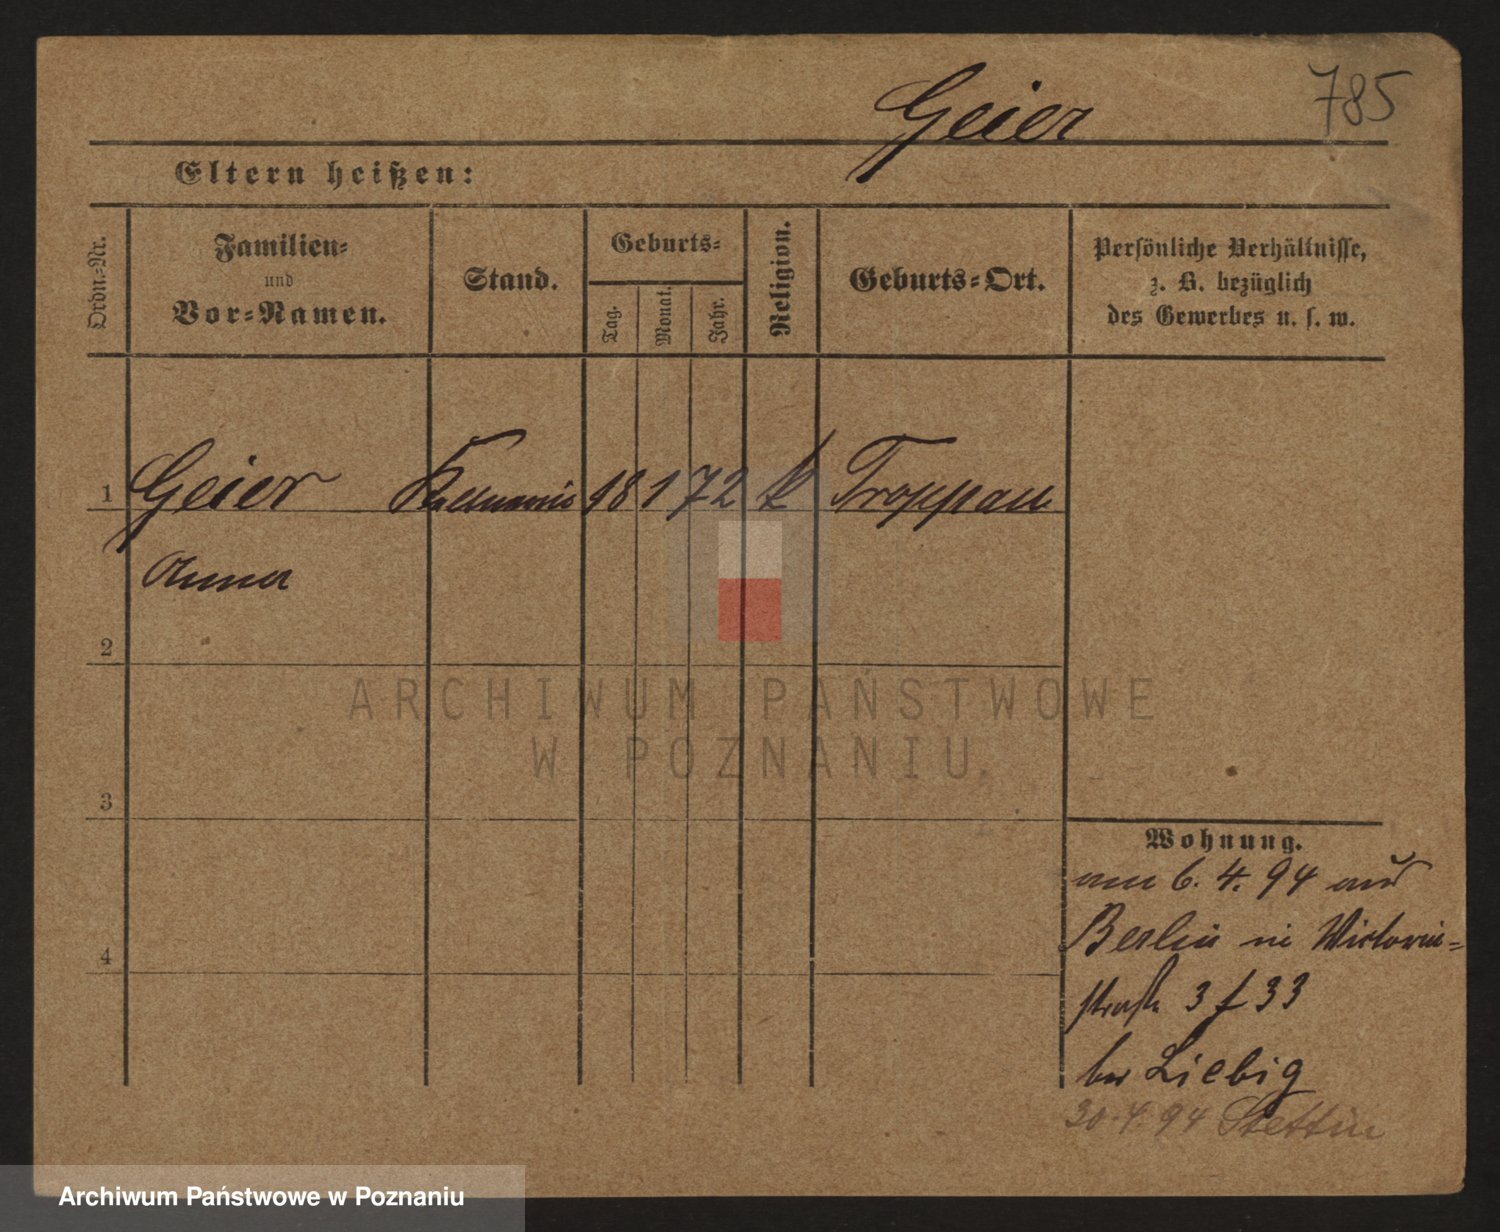 Geier 785
Eltern heißen:
Ordn.-Nr.
Familien-
und
Vor-Namen.
Stand.
Geburts-
Tag.
Monat.
Jahr.
Religion.
Geburts-Ort.
Persönliche Verhältnisse,
z. B. bezüglich
des Gewerbes u. s. w.
1 Geier Kellnerin 18 1 72 k Troppau
Anna
2
3
4
Wohnung.
am 6. 4. 94 aus
Berlin in Victoria-
straße 3 f 33
bei Liebig
30.4.94 Stettin
ARCHIWUM PAŃSTWOWE
W POZNANIU
Archiwum Państwowe w Poznaniu